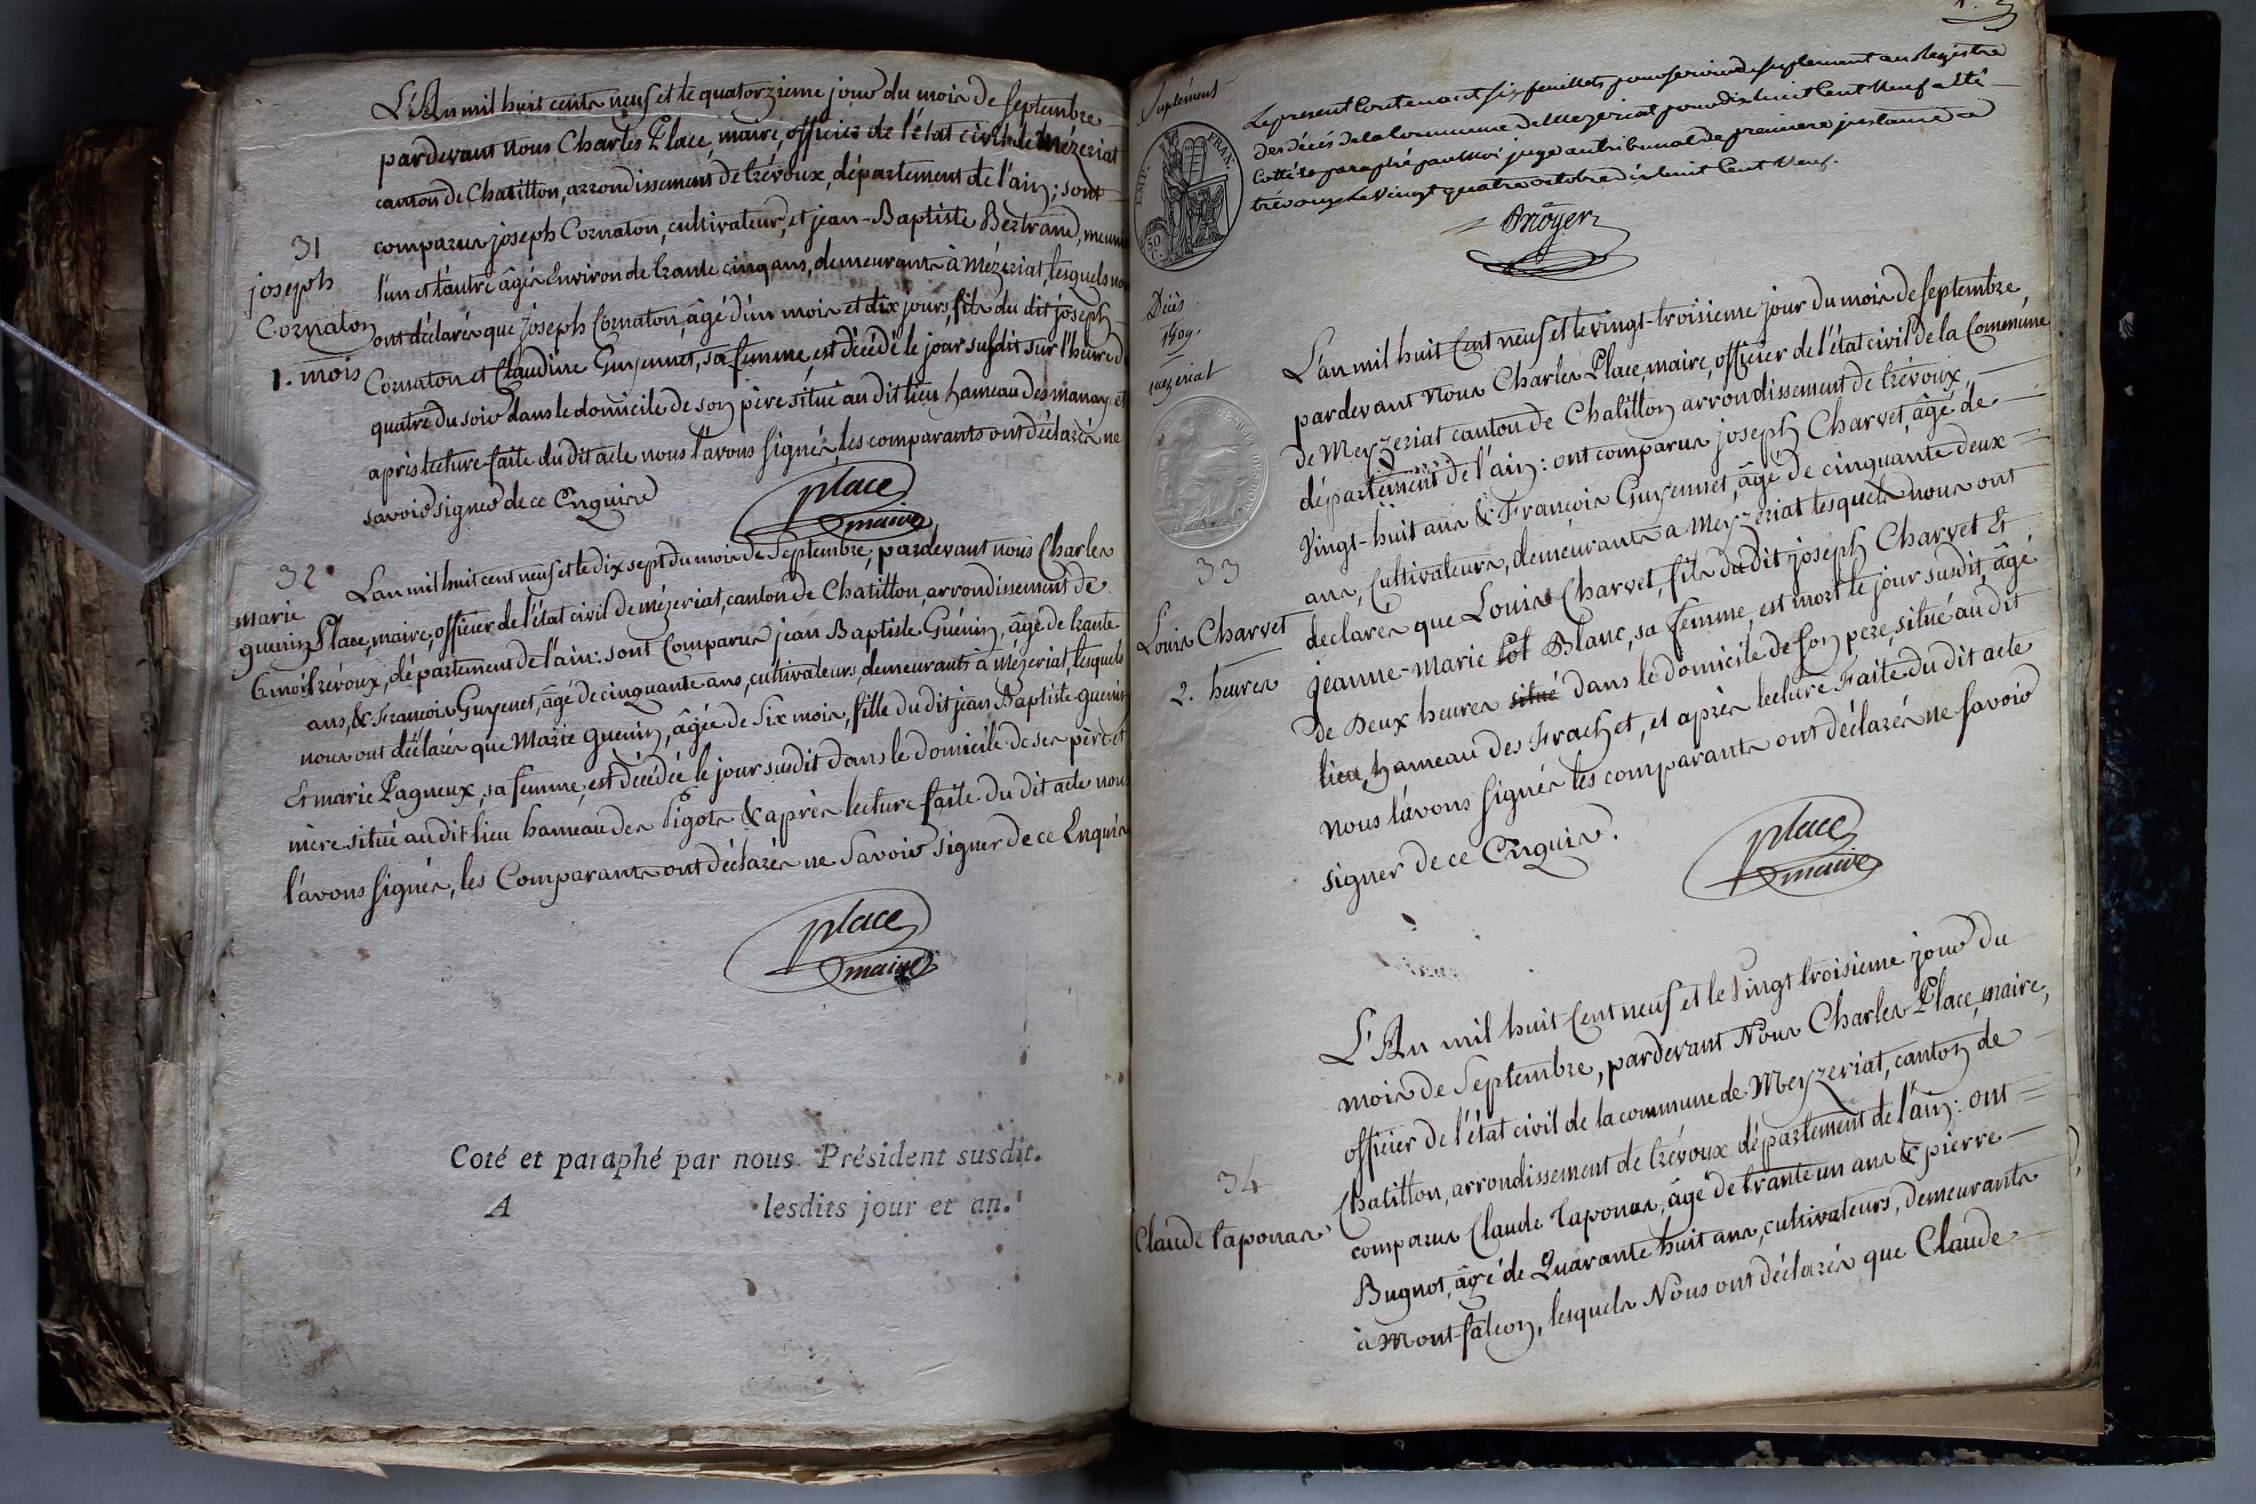 L'An mil huit cents neuf et le quatorzieme jour du mois de septembre
pardevant nous Charles Place, maire, officier de l'état civil de Mézeriat
canton de Chatillon, arrondissement de trévoux, département de l'ain; sont
comparus joseph Cornaton, cultivateur, et jean-Baptiste Bertrand, meunier
31
l'un et l'autre âgés Environ de trante cinq ans, demeurants à Mézeriat, lesquels nous
joseph
Cornaton
ont déclarés que joseph Cornaton, âgé d'un mois et dix jours, fils du dit joseph
1. mois
Cornaton et Claudine Guyennet, sa femme, est décédé le jour susdit sur l'heure de
quatre du soir dans le domicile de son père situé au dit lieu hameau des manay et
après lecture faite du dit acte nous l'avons signés, les comparants ont déclarés ne
savoir signer de ce Enquire
place
maire
32
L'an mil huit cent neuf et le dix sept du mois de Septembre, pardevant nous Charles
marie
guenin
Place, maire, officier de l'état civil de mézeriat, canton de Chatillon, arrondissement de
6 mois
trévoux, département de l'ain: sont Comparus jean Baptiste Guénin, âgé de trante
ans, & François Guyenet, âgé de cinquante ans, cultivateurs demeurants à mézeriat, lesquels
nous ont déclarés que Marie guenin, âgée de Six mois, fille du dit jean Baptiste guenin
Et marie Pagneux, sa femme, est décédée le jour susdit dans le domicile de ses père et
mère situé au dit lieu hameau des Pigots & après lecture faite du dit acte nous
l'avons signés, les Comparants ont déclarés ne Savoir signer de ce Enquis
place
maire
Coté et paraphé par nous Président susdit.
A lesdits jour et an.
Suplément
Le present Contenant six feuillets pour servir de suplement au Registre
des décès de la Commune de Mezeriat pour dix huit Cent Neuf a été
Cotté et paraphé par Moi juge au tribunal de premiere instance a
trévoux Le Vingt quatre octobre dix huit Cent Neuf.
EMP. FRAN.
50 C.
Décès
1809.
mezeriat
L'an mil huit Cent neuf et le vingt-troisieme jour du mois de septembre,
pardevant nous Charles Place, maire, officier de l'état civil de la Commune
de Meyzeriat canton de Chatillon arrondissement de trévoux,
département de l'ain: ont comparus joseph Charvet, âgé de
Vingt-huit ans & François Guyennet, âgé de cinquante deux
ans, Cultivateurs, demeurants a Meyzeriat lesquels nous ont
33
Louis Charvet
2. heures
déclarés que Louis Charvet, fils du dit joseph Charvet &
jeanne-Marie Blanc, sa femme, est mort le jour susdit, âgé
de Deux heures situé dans le domicile de son pere, situé au dit
lieu, hameau des Frachet, et après lecture Faite du dit acte
nous l'avons signés les comparants ont déclarés ne savoir
signer de ce Enquis.
place
maire
L'An mil huit Cent neuf et le Vingt troisieme jour du
mois de Septembre, pardevant Nous Charles Place, maire,
officier de l'état civil de la commune de Meyzeriat, canton de
Chatillon, arrondissement de trévoux département de l'ain: ont
34
Claude taponas
comparus Claude Taponas, âgé de trante un ans & pierre
Bugnot, âgé de Quarante huit ans, cultivateurs, demeurants
à Mont-falcon, lesquels Nous ont déclarés que Claude